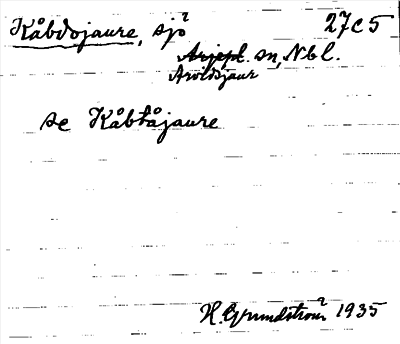 Kåbdojaure, sjö 27C5
Arjepl. sn, Nbl.
Arvidsjaur
se Kåbtåjaure
H. Grundström 1935